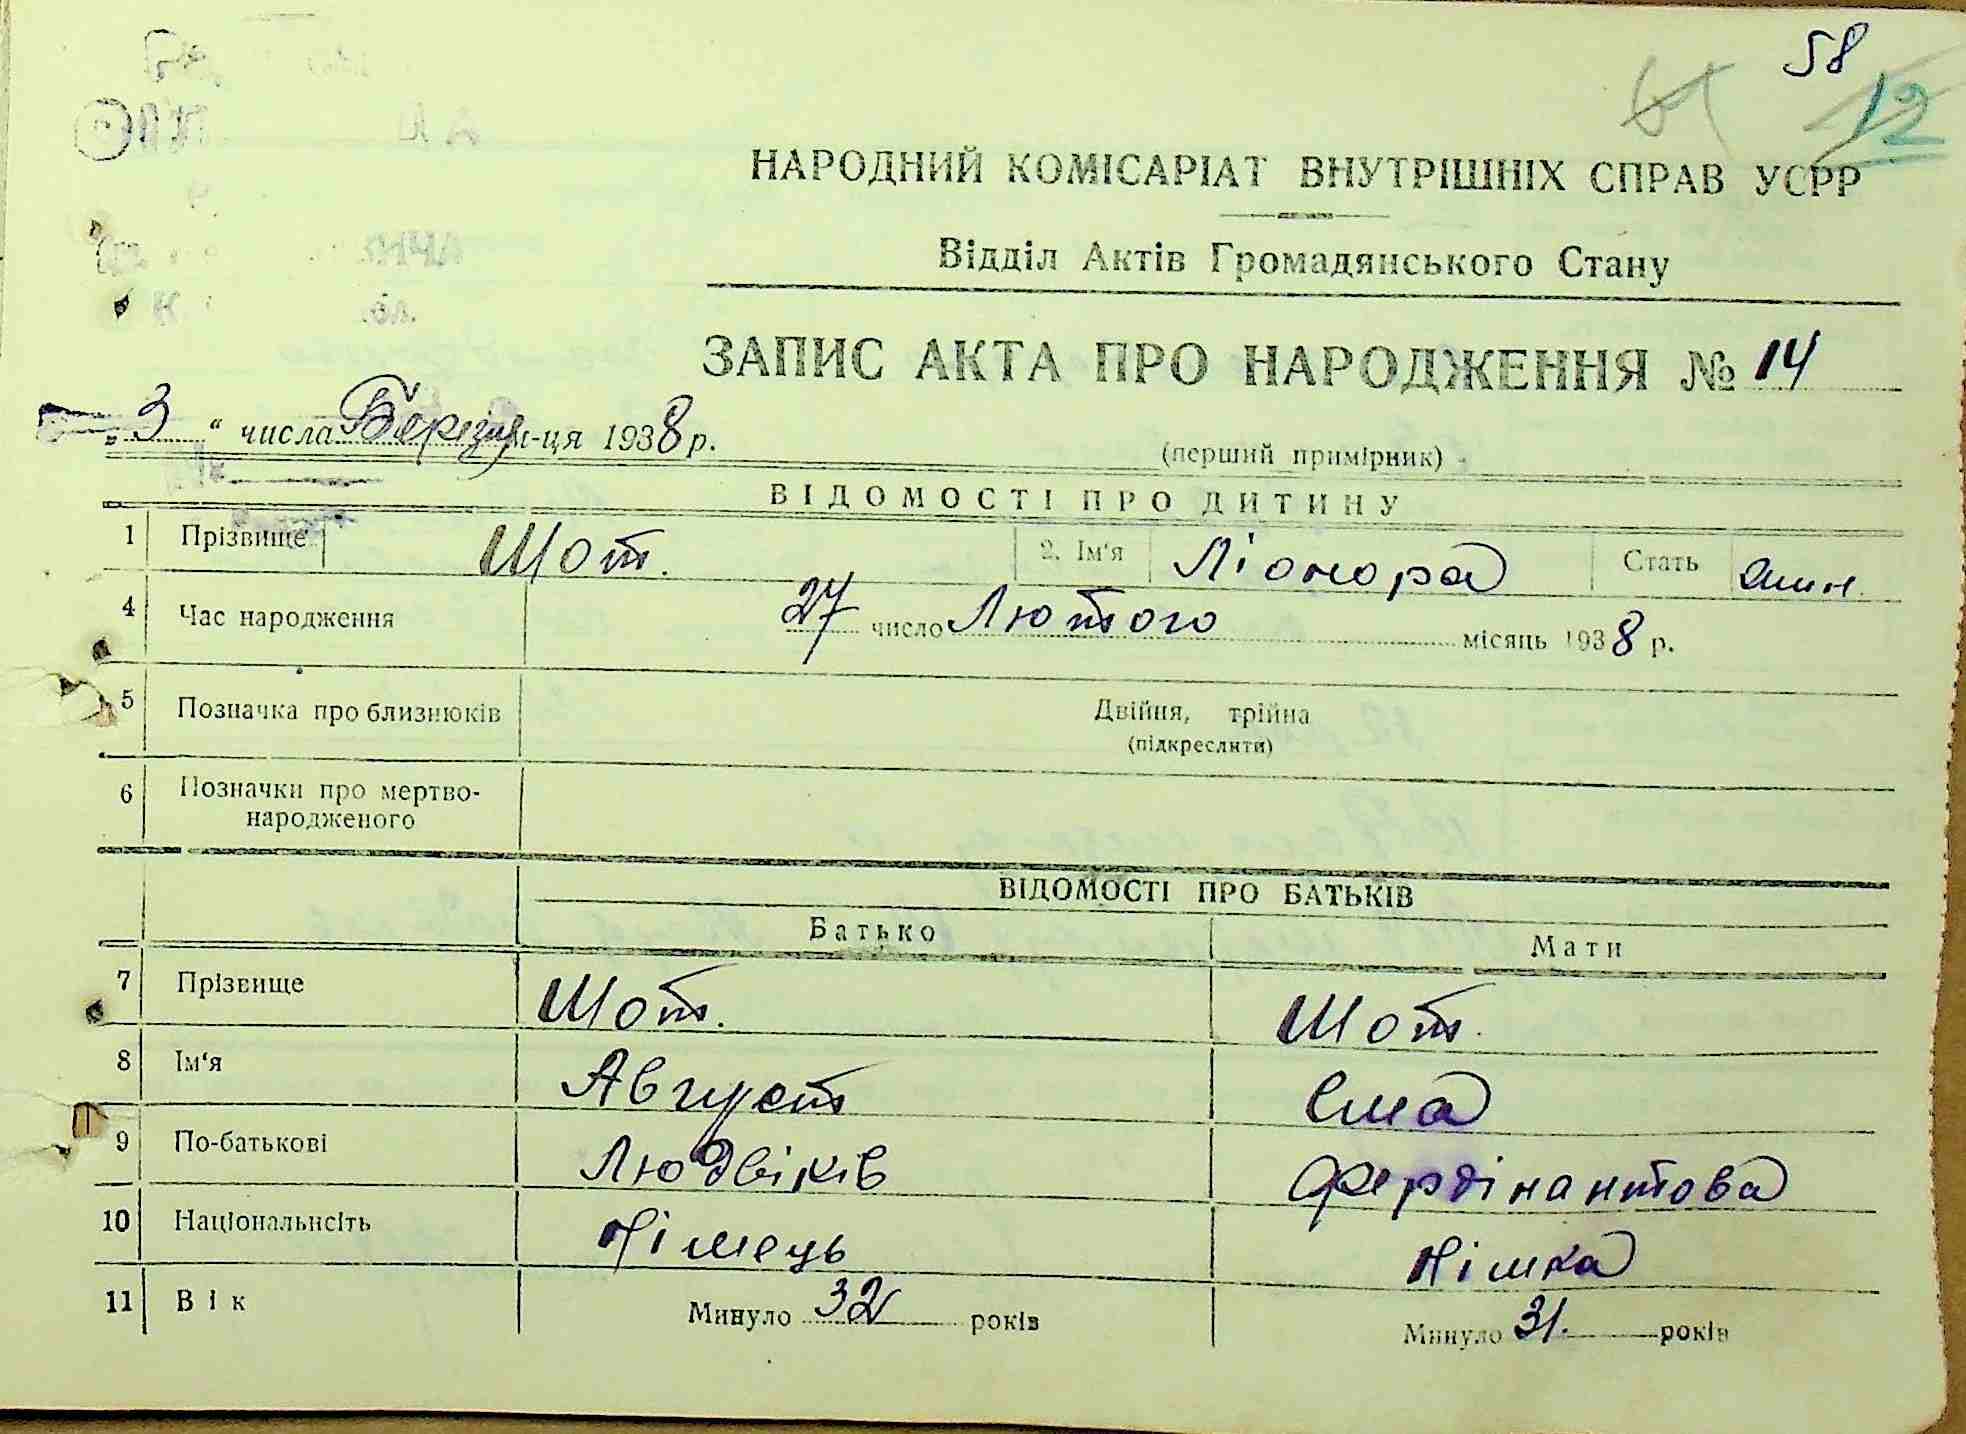 58
12
НАРОДНИЙ КОМІСАРІАТ ВНУТРІШНІХ СПРАВ УСРР
Відділ Актів Громадянського Стану
ЗАПИС АКТА ПРО НАРОДЖЕННЯ № 14
„ 3 “ числа Березня м-ця 1938 р.
(перший примірник)
ВІДОМОСТІ ПРО ДИТИНУ
1 Прізвище Шот. 2. Ім'я Ліонора Стать жін.
4 Час народження 27 число Лютого місяць 1938 р.
5 Позначка про близнюків Двійня, трійна
(підкреслити)
6 Позначки про мертво-
народженого
ВІДОМОСТІ ПРО БАТЬКІВ
Батько Мати
7 Прізвище Шот. Шот.
8 Ім'я Август Ема
9 По-батькові Людвіків Фердінантова
10 Національнсіть Німець Німка
11 Вік Минуло 32 років Минуло 31. років